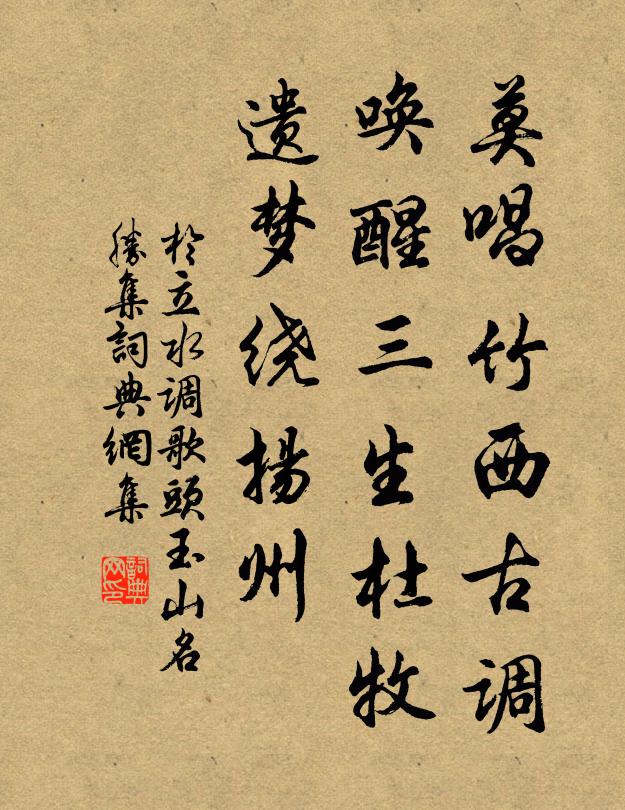 莫唱竹西古调
唤醒三生杜牧
遗梦绕揚州
於立水调歌頭玉山名
勝集詞典網集
詞典网印